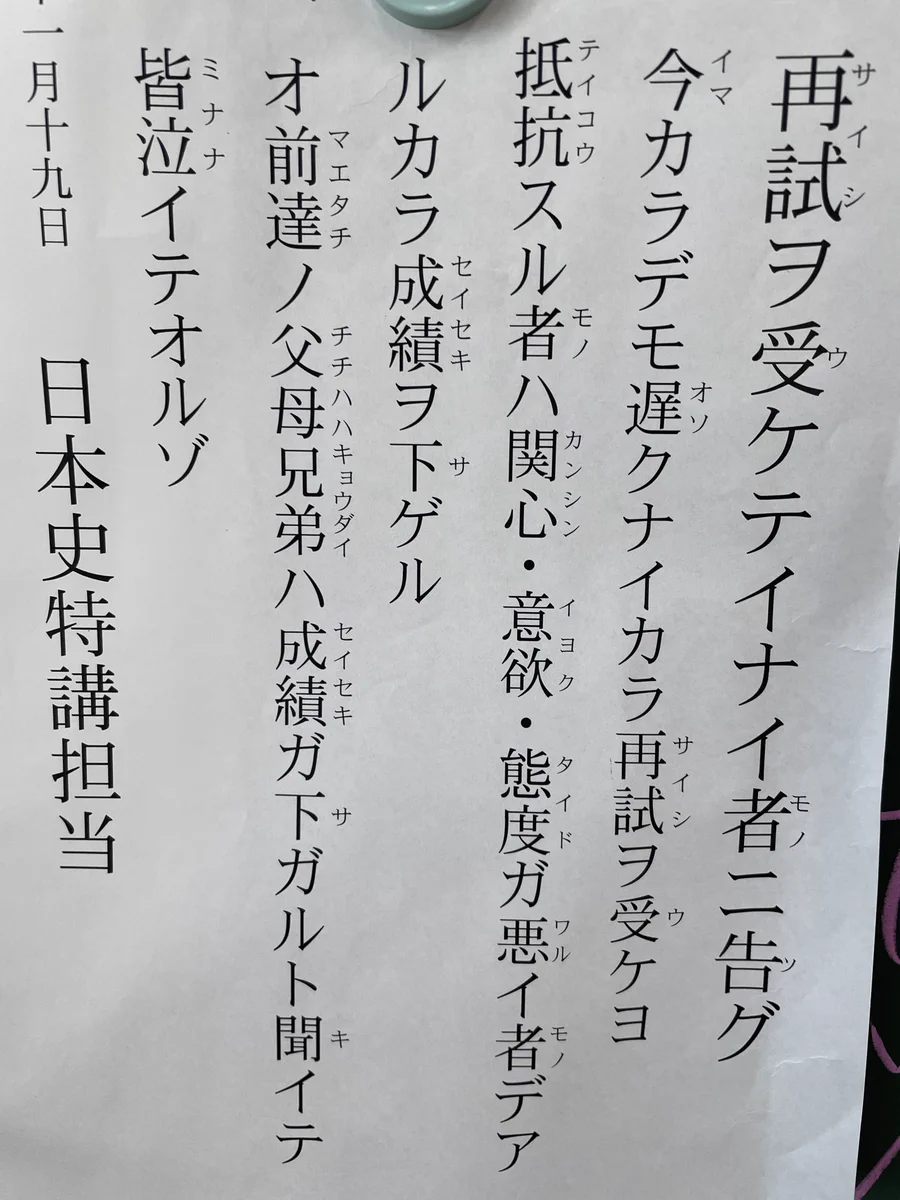 再試ヲ受ケテイナイ者ニ告グ
今カラデモ遅クナイカラ再試ヲ受ケヨ
抵抗スル者ハ関心・意欲・態度ガ悪イ者デア
ルカラ成績ヲ下ゲル
オ前達ノ父母兄弟ハ成績ガ下ガルト聞イテ
皆泣イテオルゾ
一月十九日 日本史特講担当